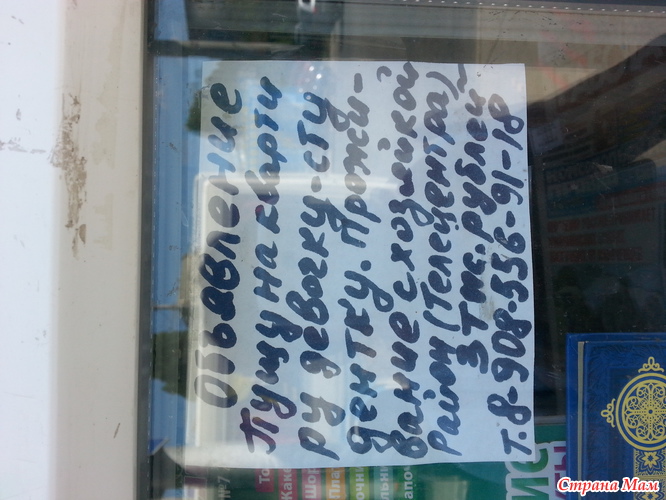 Объявление
Пущу на кварти
ру девочку-сту
дентку. Прожи-
вание с хозяйкой
район (Телецентра)~
3 тыс. рублей
т. 8-908-556-91-18
Страна Мам